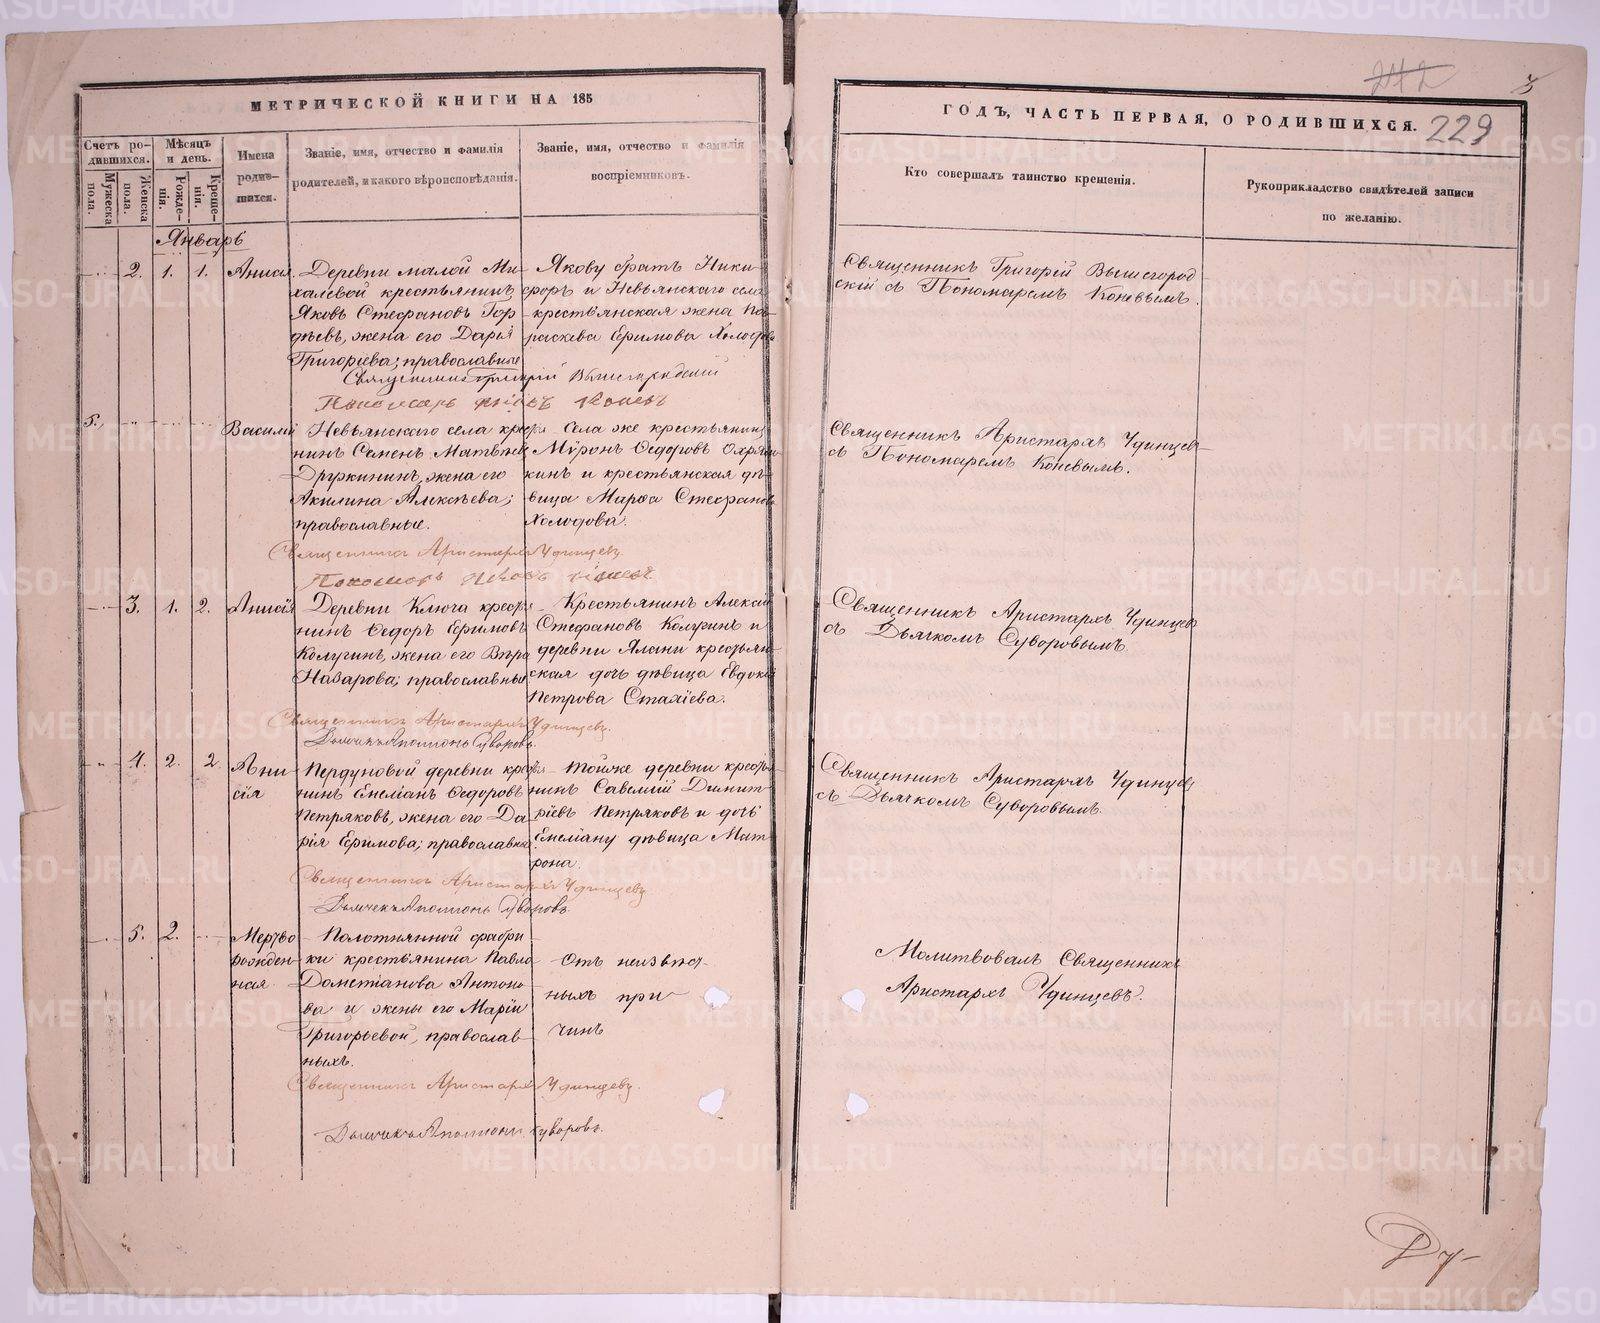 МЕТРИЧЕСКОЙ КНИГИ НА 185
Счетъ родившихся.
Мужеска пола.
Женска пола.
Мѣсяцъ и день.
Рожденія.
Крещенія.
Имена родившихся.
Званіе, имя, отчество и фамилія
родителей, и какого вѣроисповѣданія.
Званіе, имя, отчество и фамилія
воспріемниковъ.
Январь
2. 1. 1. Анисія
Деревни малой Ми-
халевой крестьянинъ
Яковъ Стефановъ Гор-
дѣевъ, жена его Дарія
Григоріева; православные
Якову братъ Ники-
форъ и Невьянскаго села
крестьянская жена Па-
раскева Ефимова Холодова
Священникъ Григорій Вышегородскій
Пономарь Коневъ
5. Василій
Невьянскаго села крестья-
нинъ Семенъ Матвѣевъ
Дружининъ, жена его
Акилина Алексѣева;
православные.
Села же крестьянинъ
Мѵронъ Ѳедоровъ Охрям-
кинъ и крестьянская дѣ-
вица Марѳа Стефанова
Холодова.
Священникъ Аристархъ Удинцевъ
Пономарь Коневъ
3. 1. 2. Анисія
Деревни Ключа крестья-
нинъ Ѳедоръ Ефимовъ
Колугинъ, жена его Вѣра
Назарова; православные
Крестьянинъ Алексій
Стефановъ Колугинъ и
деревни Ялани крестьян-
ская дочь дѣвица Евдокія
Петрова Стахіева.
Священникъ Аристархъ Удинцевъ.
Дьячекъ Аполлонъ Суворовъ.
4. 2. 2. Ани-
сія
Пердуновой деревни кресть-
нинъ Емеліанъ Ѳедоровъ
Петряковъ, жена его Да-
рія Ефимова; православные
Тойже деревни крестья-
нинъ Савелій Димит-
ріевъ Петряковъ и дочь
Емеліану дѣвица Мат-
рона.
Священникъ Аристархъ Удинцевъ
Дьячекъ Аполлонъ Суворовъ
5. 2. Мертво
рожден-
ная
Полотнянной фабри-
ки крестьянина Павла
Дометіанова Антоно-
ва и жены его Маріи
Григорьевой, православ-
ныхъ.
Отъ неизвѣст-
ныхъ при-
чинъ
Священникъ Аристархъ Удинцевъ.
Дьячекъ Аполлонъ Суворовъ.
242
229
ГОДЪ, ЧАСТЬ ПЕРВАЯ, О РОДИВШИХСЯ.
Кто совершалъ таинство крещенія.
Рукоприкладство свидѣтелей записи
по желанію.
Священникъ Григорій Вышегород-
скій съ Пономаремъ Коневымъ.
Священникъ Аристархъ Удинцевъ
съ Пономаремъ Коневымъ.
Священникъ Аристархъ Удинцевъ
съ Дьячкомъ Суворовымъ.
Священникъ Аристархъ Удинцевъ
съ Дьячкомъ Суворовымъ.
Молитвовалъ Священникъ
Аристархъ Удинцевъ.
METRIKI.GASO-URAL.RU